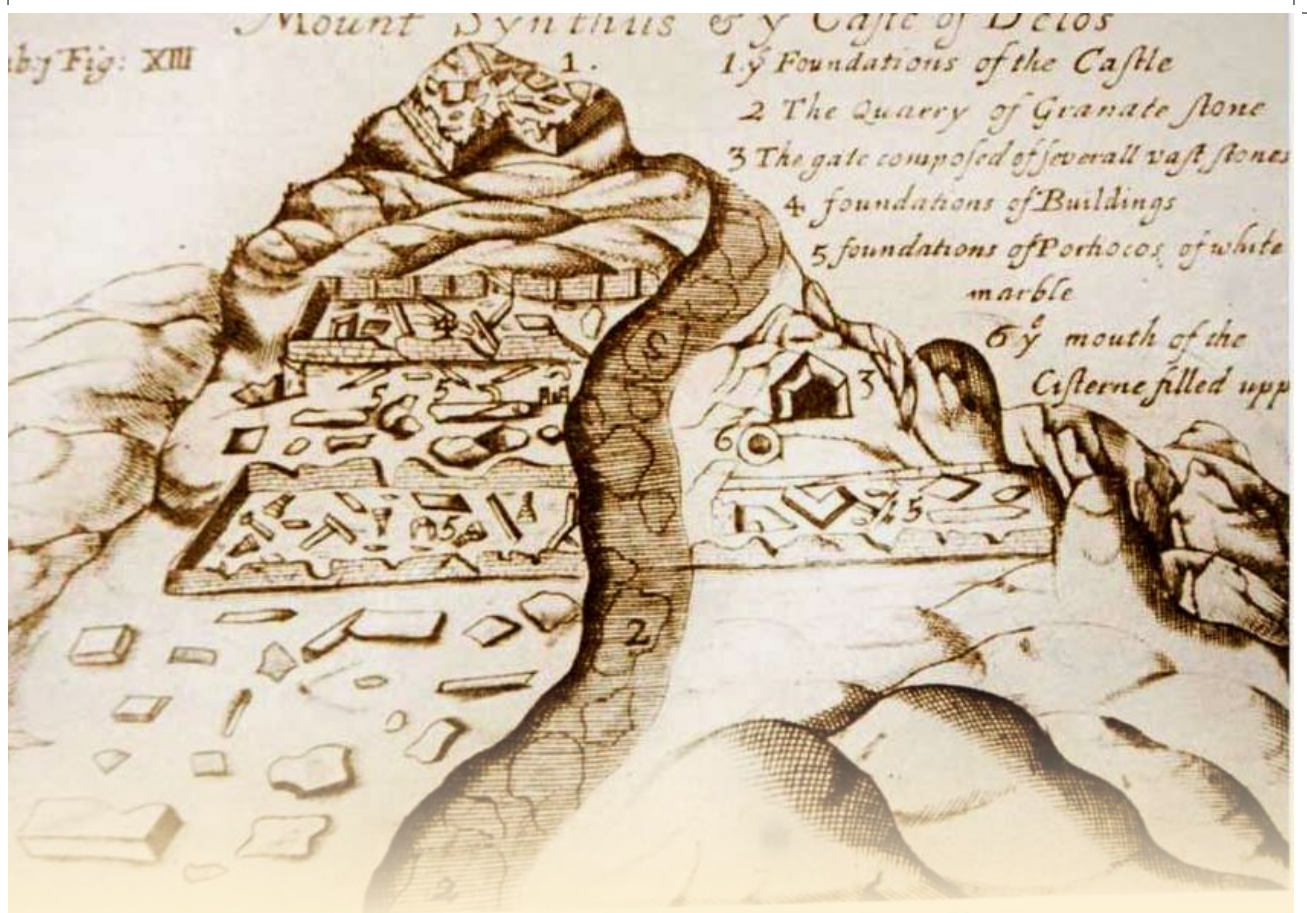 Mount Synthus & ẏ Caſtle of Delos
Fig: XIII
1.
1.ẏ Foundations of the Caſtle
2 The Quarry of Granate ſtone
3 The gate compoſed of ſeverall vaſt ſtones
4 foundations of Buildings
5 foundations of Porticos, of white
marble
6 ẙ mouth of the
Ciſterne filled upp
4
2
5
5
3
6
5
25
2
2